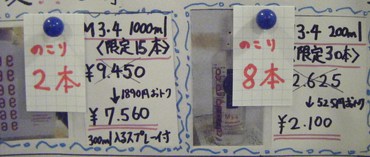 のこり
2本
M3.4 1000ml
〈限定15本〉
¥9.450
↓1890円おトク
¥7.560
300ml入るスプレー付
のこり
8本
3.4 200ml
限定30本〉
2.625
↓525円おトク
¥2.100